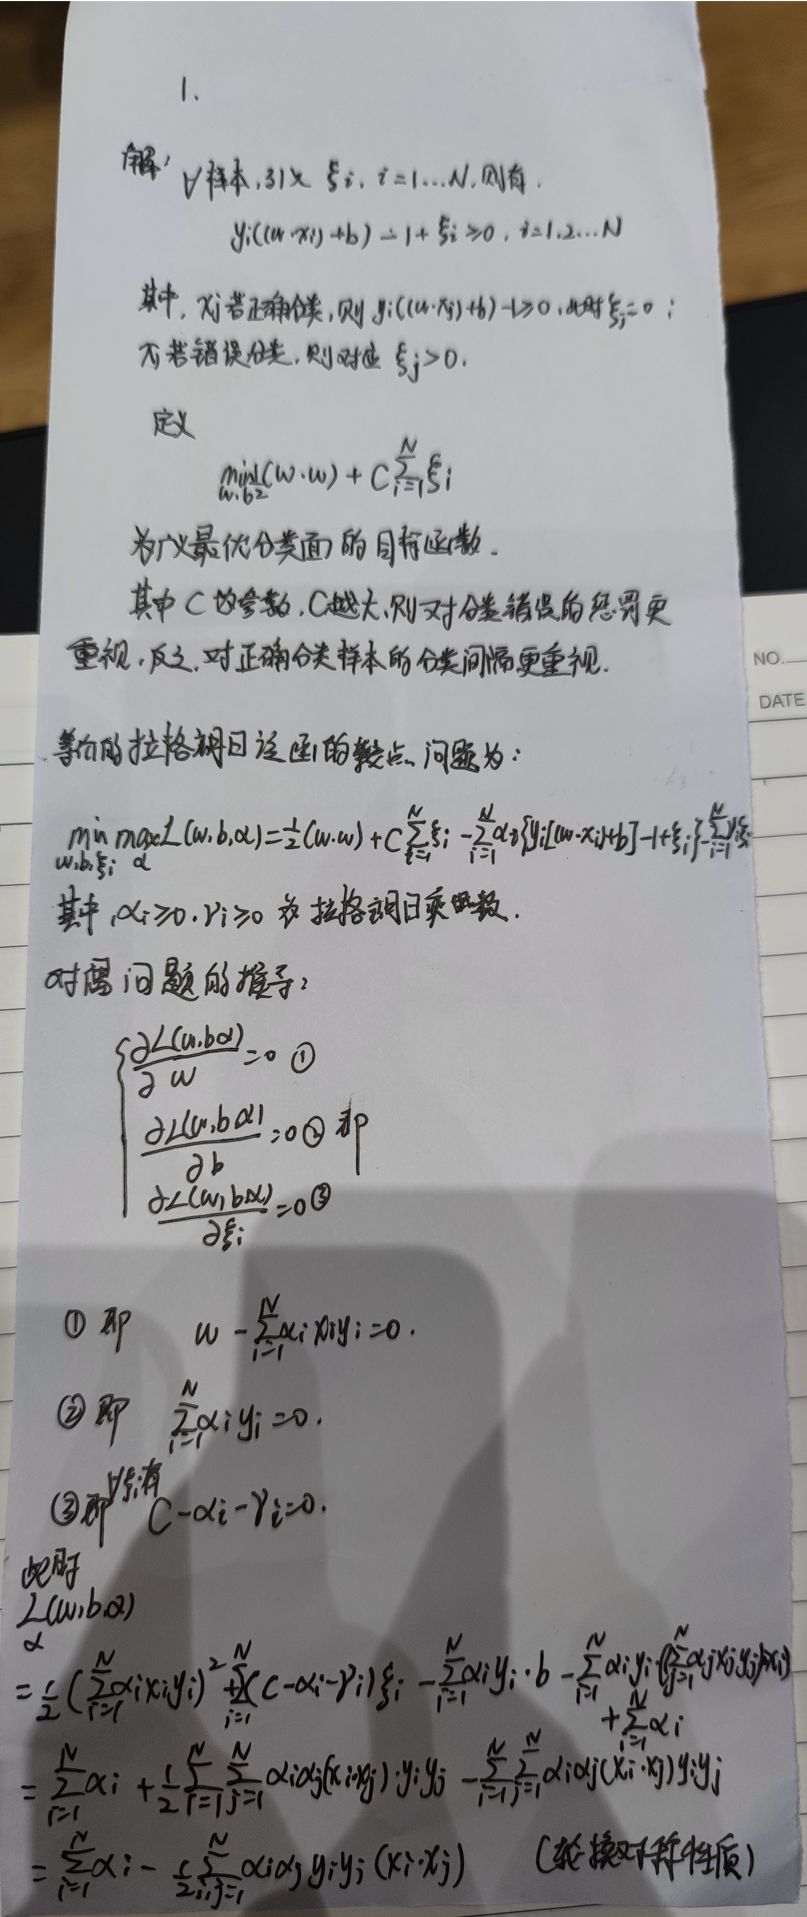 1.
解: ∀样本,引入 ξi, i=1...N,则有.
yi((w·xi)+b)-1+ξi≥0, i=1,2...N
其中, xj若正确分类,则 yj((w·xj)+b)-1≥0,此时 ξj=0;
xj若错误分类,则对应 ξj>0.
定义
min w,b 1/2 (w·w) + C Σ_{i=1}^{N} ξi
为广义最优分类面的目标函数.
其中C为参数,C越大,则对分类错误的惩罚更
重视,反之,对正确分类样本的分类间隔更重视.
NO.
DATE
等价的拉格朗日泛函的鞍点问题为:
min w,b,ξi max α L(w,b,α)=1/2(w·w)+CΣ_{i=1}^{N}ξi-Σ_{i=1}^{N}αi{yi[(w·xi)+b]-1+ξi}-Σ_{i=1}^{N}γiξi
其中,αi≥0,γi≥0为拉格朗日乘函数.
对偶问题的推导:
∂L(w,b,α)/∂w=0 ①
∂L(w,b,α)/∂b=0 ② 即
∂L(w,b,α)/∂ξi=0 ③
①即 w-Σ_{i=1}^{N}αixiyi=0.
②即 Σ_{i=1}^{N}αiyi=0.
③即∀ξi有 C-αi-γi=0.
此时
L(w,b,α)
α
=1/2(Σ_{i=1}^{N}αixiyi)²+Σ_{i=1}^{N}(C-αi-γi)ξi-Σ_{i=1}^{N}αiyi·b-Σ_{i=1}^{N}αiyi((Σ_{j=1}^{N}αjxjyj)·xi)
+Σ_{i=1}^{N}αi
=Σ_{i=1}^{N}αi+1/2Σ_{i=1}^{N}Σ_{j=1}^{N}αiαj(xi·xj)·yiyj-Σ_{i=1}^{N}Σ_{j=1}^{N}αiαj(xi·xj)yiyj
=Σ_{i=1}^{N}αi-1/2Σ_{i,j=1}^{N}αiαjyiyj(xi·xj) (轮换对称性质)